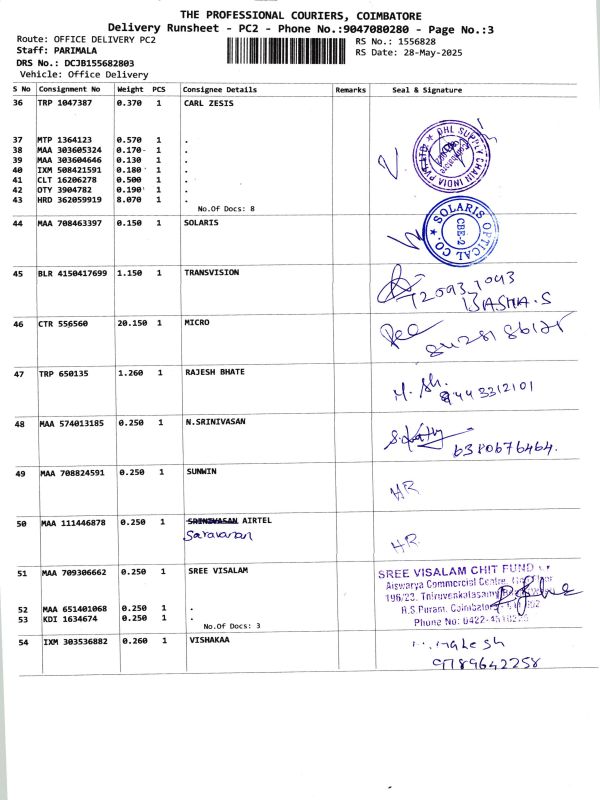 THE PROFESSIONAL COURIERS, COIMBATORE
Delivery Runsheet - PC2 - Phone No.:9047080280 - Page No.:3
Route: OFFICE DELIVERY PC2
RS No.: 1556828
Staff: PARIMALA
RS Date: 28-May-2025
DRS No.: DCJB155682803
Vehicle: Office Delivery
S No Consignment No Weight PCS Consignee Details Remarks Seal & Signature
36 TRP 1047387 0.370 1 CARL ZESIS
37 MTP 1364123 0.570 1 .
38 MAA 303605324 0.170 1 .
39 MAA 303604646 0.130 1 .
40 IXM 508421591 0.180 1 .
41 CLT 16206278 0.500 1 .
42 OTY 3904782 0.190 1 .
43 HRD 362059919 8.070 1 .
No.Of Docs: 8
DHL SUPPLY CHAIN INDIA PVT. LTD ★
44 MAA 708463397 0.150 1 SOLARIS
★ SOLARIS OPTICAL CO.
CBE-2
45 BLR 4150417699 1.150 1 TRANSVISION
BASHA.S
46 CTR 556560 20.150 1 MICRO
47 TRP 650135 1.260 1 RAJESH BHATE
M. Sh.
9443312101
48 MAA 574013185 0.250 1 N.SRINIVASAN
6380676464.
49 MAA 708824591 0.250 1 SUNWIN
HR
50 MAA 111446878 0.250 1 SRINIVASAN AIRTEL
Saravanan
HR
51 MAA 709306662 0.250 1 SREE VISALAM
SREE VISALAM CHIT FUND
Aiswarya Commercial Centre,
196/23, Thiruvenkatasamy
R.S Puram, Coimbatore
Phone No: 0422-
52 MAA 651401068 0.250 1 .
53 KDI 1634674 0.250 1 .
No.Of Docs: 3
54 IXM 303536882 0.260 1 VISHAKAA
9789642258